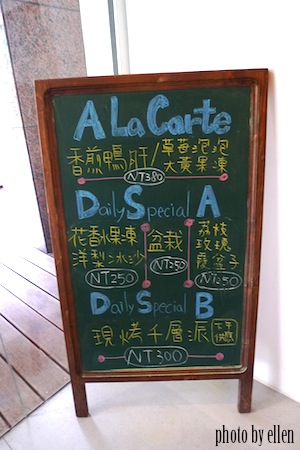 A La Carte
香煎鴨肝/草莓泡泡
大黃果凍
NT380
Daily Special A
花香水果凍
洋梨冰沙
NT250
盆栽
NT250
荔枝
玫瑰
覆盆子
NT250
Daily Special B
現烤千層派
下午
供應
NT300
photo by ellen